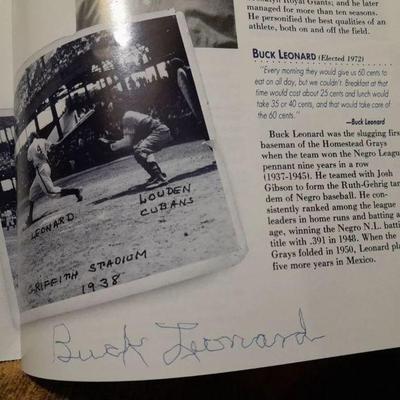 oklyn Royal Giants; and he later
managed for more than ten seasons.
He personified the best qualities of an
athlete, both on and off the field.
BUCK LEONARD (Elected 1972)
"Every morning they would give us 60 cents to
eat on all day, but we couldn't. Breakfast at that
time would cost about 25 cents and lunch would
take 35 or 40 cents, and that would take care of
the 60 cents."
—Buck Leonard
Buck Leonard was the slugging first
baseman of the Homestead Grays
when the team won the Negro Leag
pennant nine years in a row
(1937-1945). He teamed with Josh
Gibson to form the Ruth-Gehrig tan
dem of Negro baseball. He con-
sistently ranked among the league
leaders in home runs and batting a
age, winning the Negro N.L. batti
title with .391 in 1948. When the
Grays folded in 1950, Leonard pla
five more years in Mexico.
LEONARD
LOUDEN
CUBANS
GRIFFITH STADIUM
1938
Buck Leonard